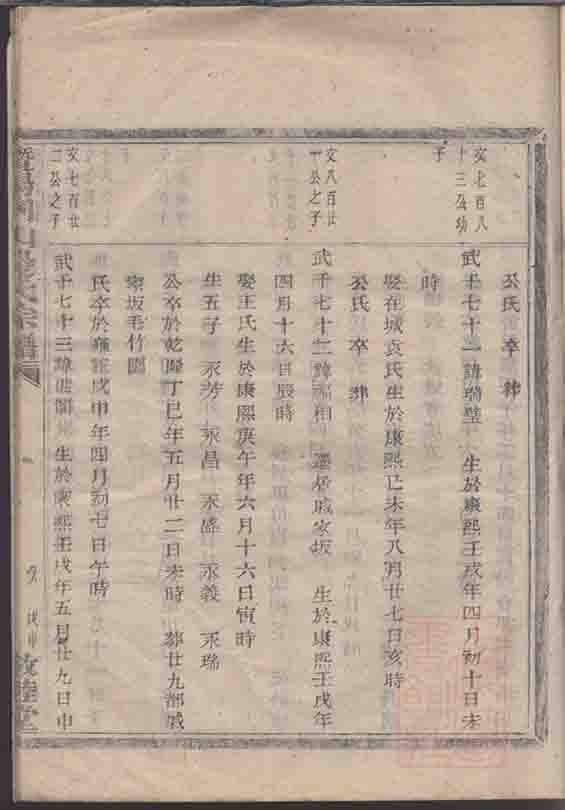 公氏 卒 葬
文七百八
十三公幼
子
武千七十一諱瑞璧 生於康熙壬戌年四月初十日未
時
娶在城袁氏生於康熙己未年八月廿七日亥時
公氏 卒 葬
文八百廿
一公之子
武千七十二諱福相 遷居戚家坂 生於康熙壬戌年
四月十六日辰時
娶王氏生於康熙庚午年六月十六日寅時
生五子 永芳 永昌 永盛 永義 永瑞
公卒於乾隆丁巳年五月廿二日未時 葬廿九都戚
家坂毛竹園
氏卒於雍正戊申年四月初七日午時
文七百廿
二公之子
武千七十三諱 生於康熙壬戌年五月廿九日申
宗譜
敦睦堂